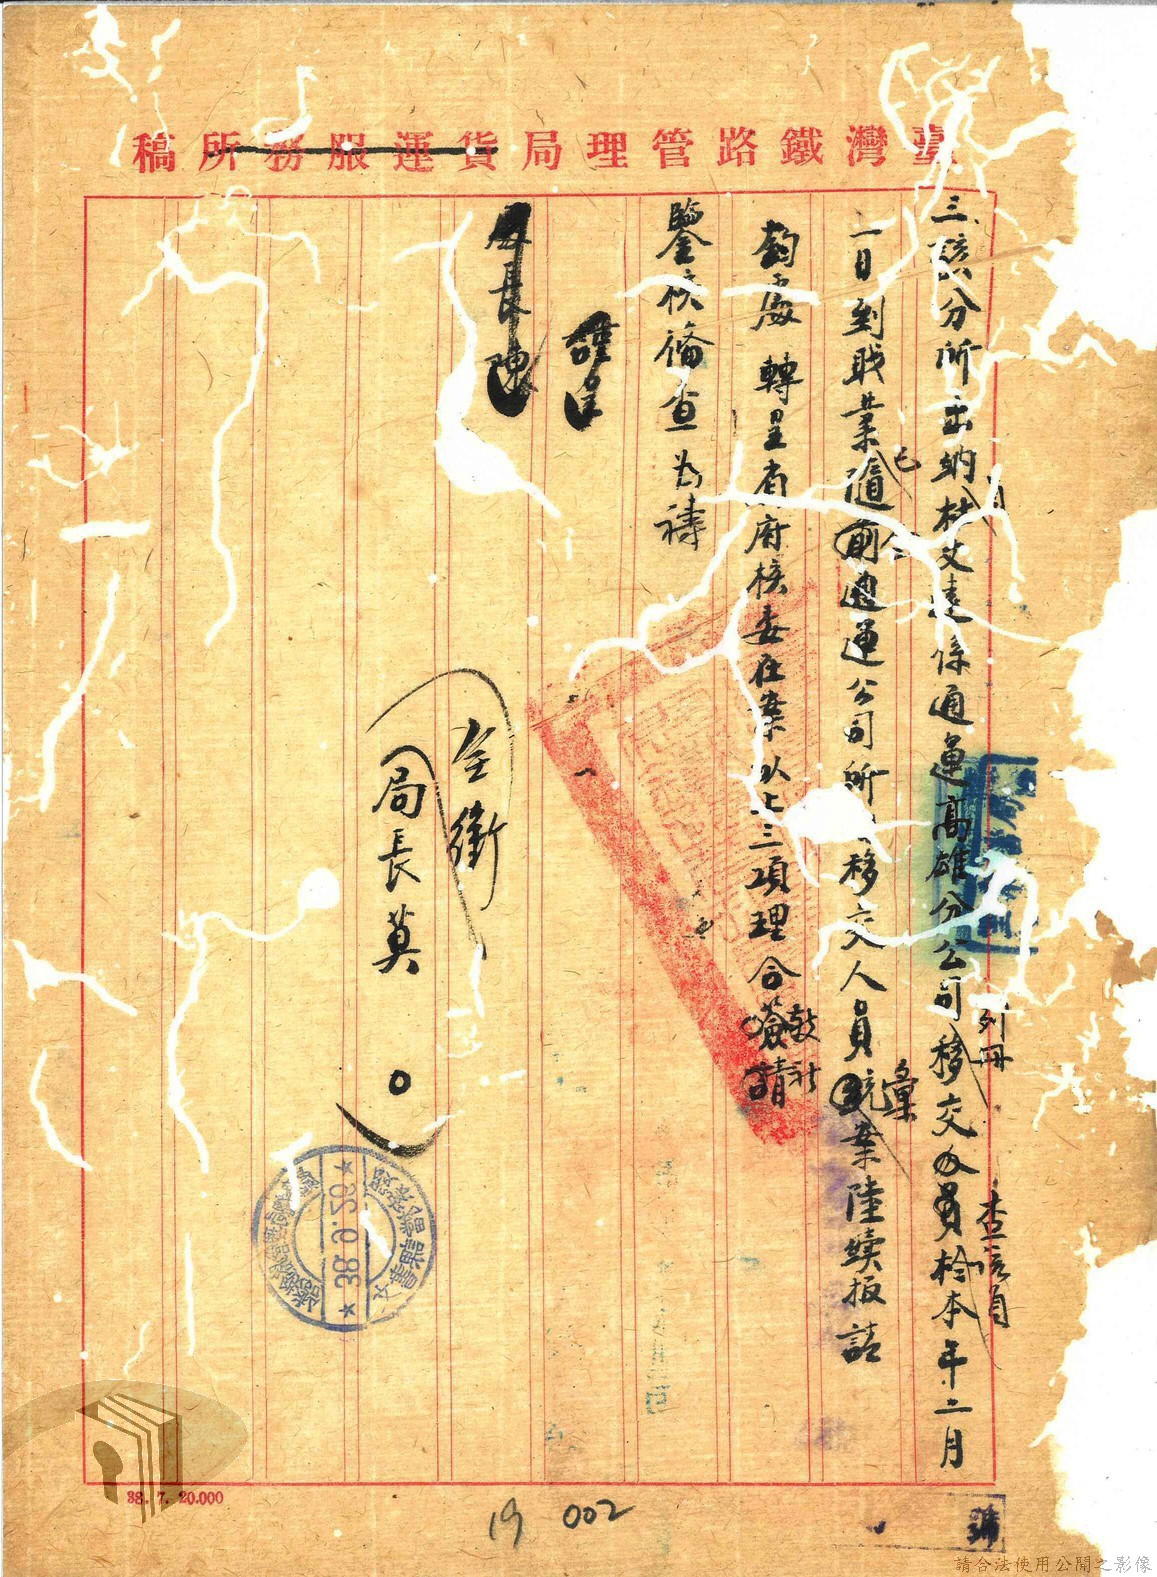 臺灣鐵路管理局貨運服務所稿
三、該分所出納杜文達係通運高雄分公司移交人員於本年二月
員
列冊
查該員
一日到職業隨前通運公司所 移交人員統業陸續报請
已
彙
鈞處轉呈省府核委在案以上三項理合簽請
敬祈
鑒核備查為禱
謹呈
處長陳
全銜
局長莫
38.9.29
38. 7. 20.000
19 002
號
請合法使用公開之影像